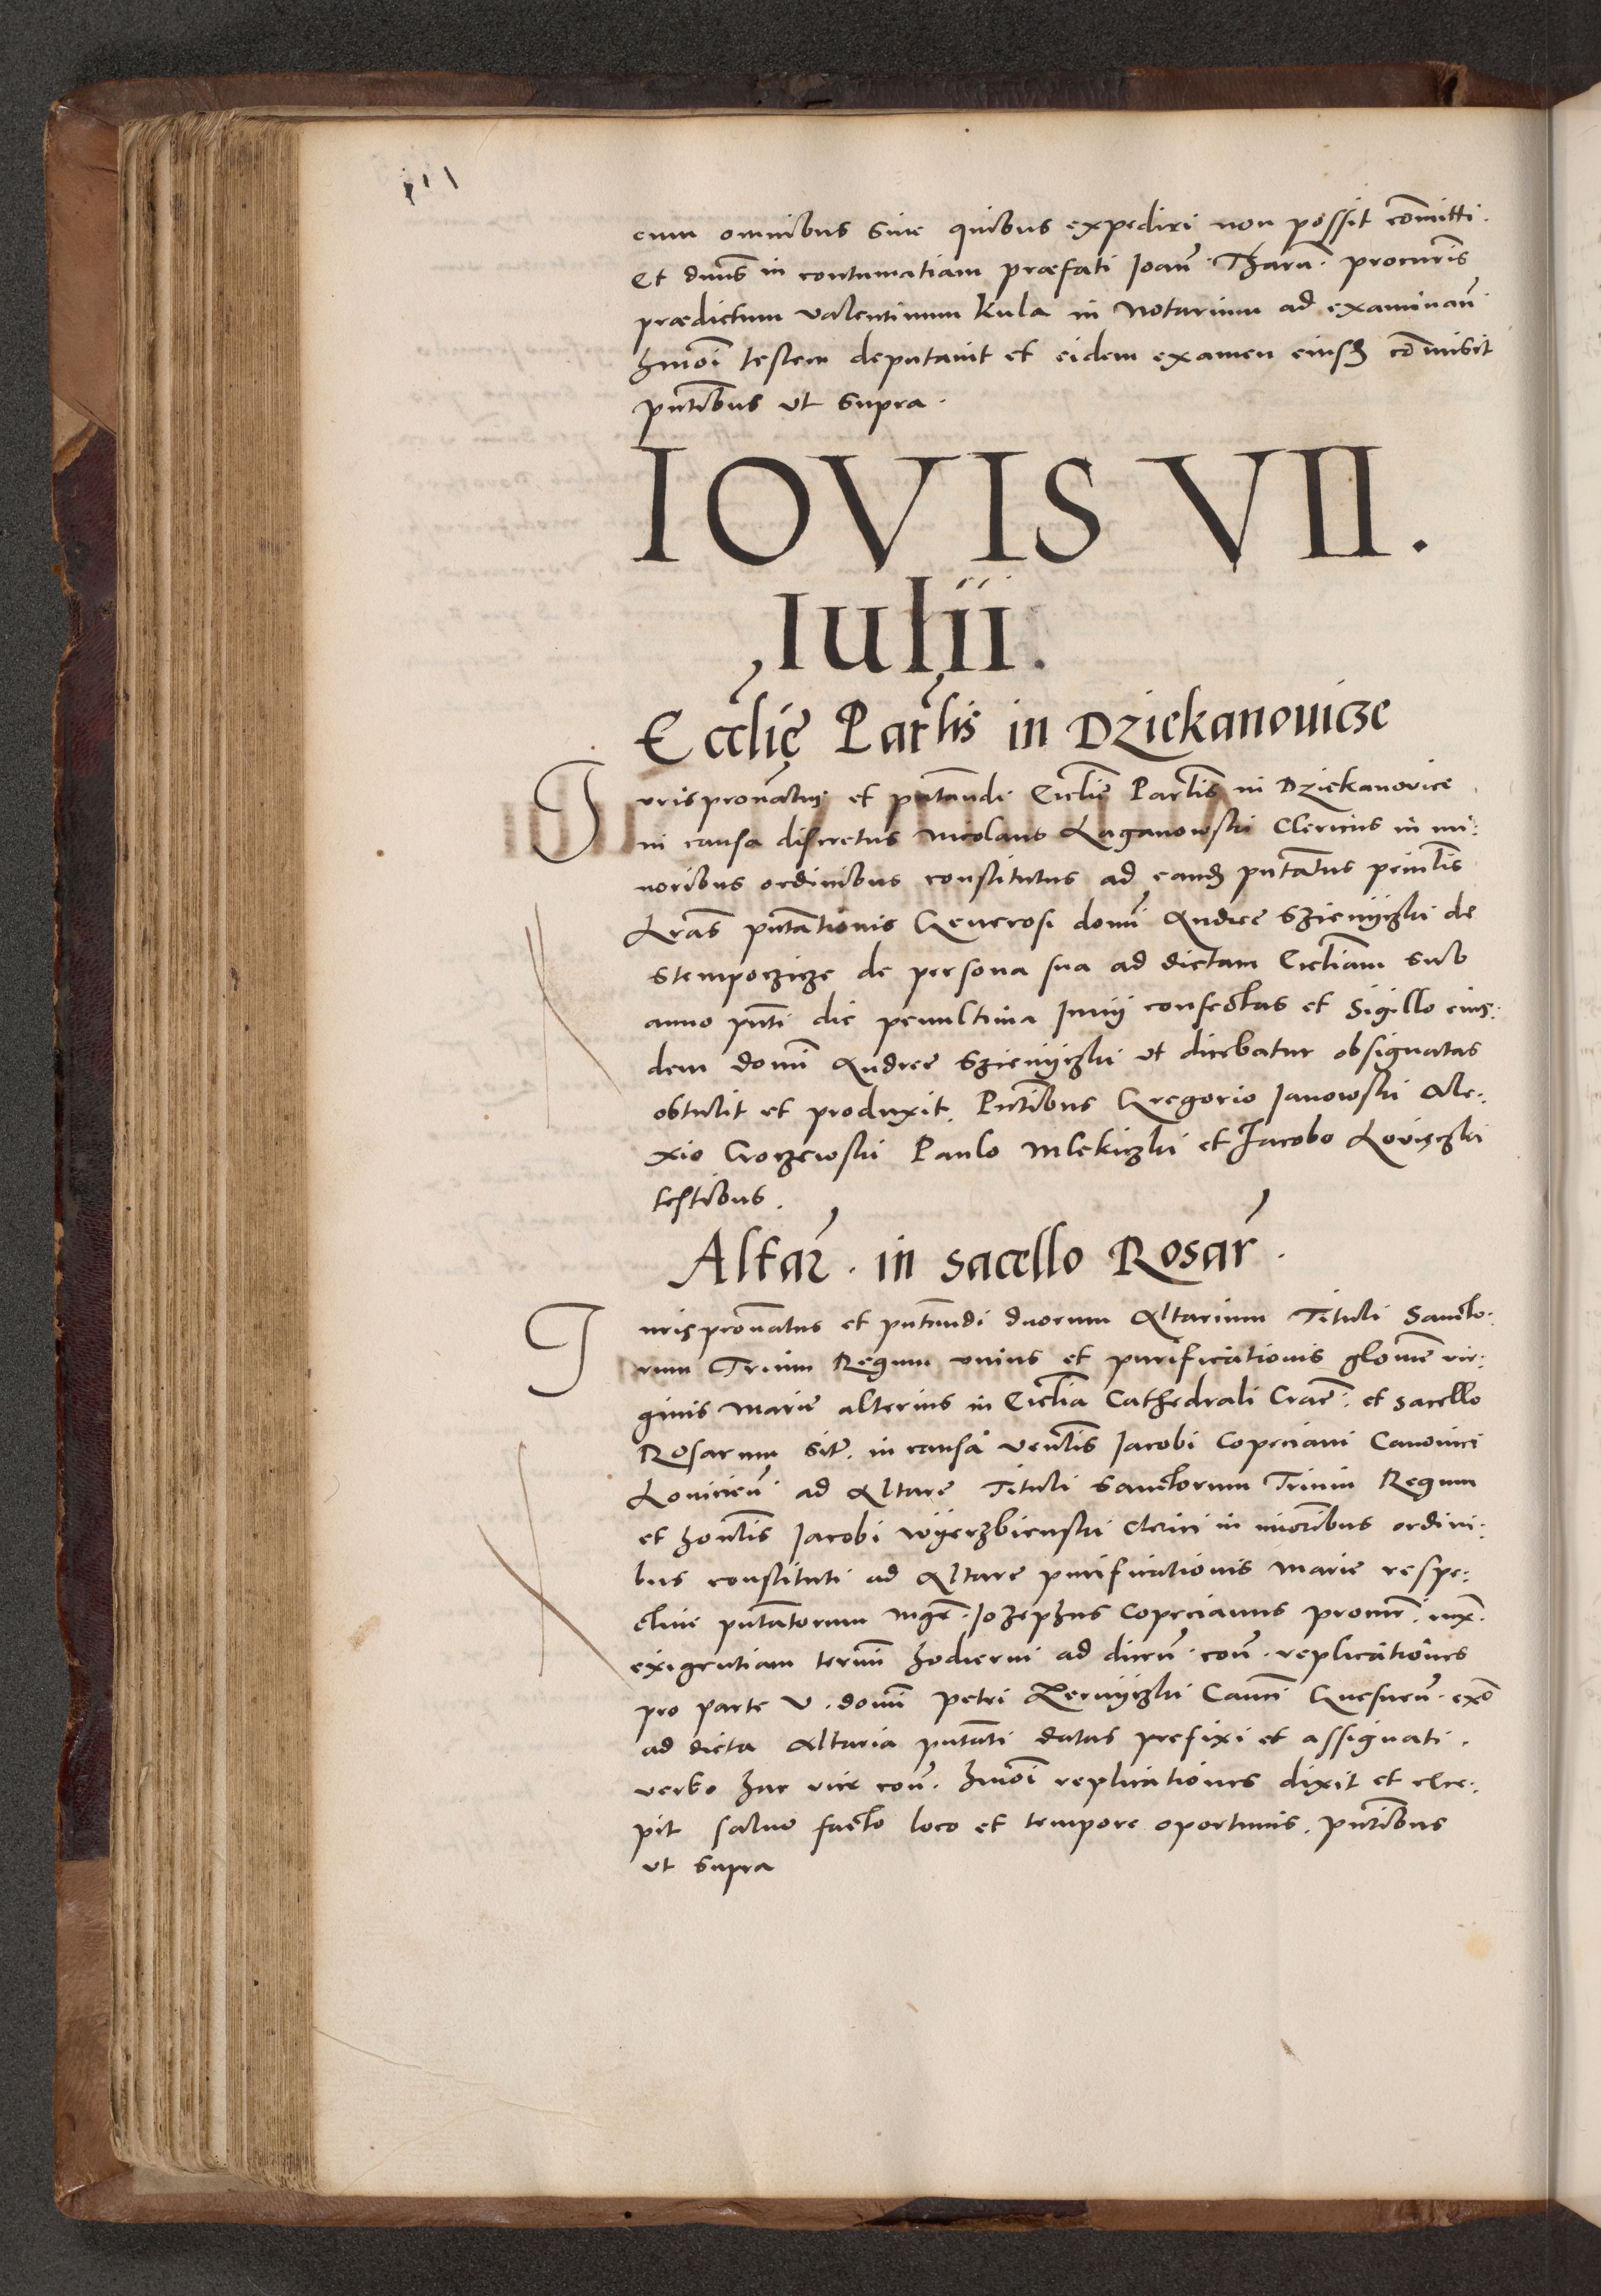 cum omnibus sine quibus expediri non possit cōmitti.
Et dnus in contumatiam præfati Joan̄. Tharn̄. procuris
prædictum Valentinum Kula in Notarium ad examinan̄
hmōi testem deputavit et eidem examen eiusd cōmisit
pntibus ut supra.
IOVIS VII.
Iulii.
Ecclię Parlis in Dziekanovicze
Jurispronatus et pntandi Ecclie Parlis in Dziekanovice
in causa discretus Nicolaus Luganowski Clericus in mi:
noribus ordinibus constitutus ad eand pntatus prinlis
Lras pntationis Generosi domi Andree
de persona sua ad dictam Eccliam sub
anno pnti die penultima Junij confectas et Sigillo eius:
dem domi Andree ut dicebatur obsignatas
obtulit et produxit. Pntibus Gregorio Janowski Ale:
xio Gorzewski Paulo Mlekiczki et Jacobo Lovięczki
testibus.
Altar. in sacello Rosar.
Jurispronatus et pntandi duorum Altarium Tituli Sancto:
rum Trium Regum unius et purificationis gloriose vir:
ginis Marie alterius in Ecclia Cathedrali Crac. et sacello
Rosarum sit. in causa venlis Jacobi Copeciani Canonici
Lovicien̄ ad Altare Tituli Sanctorum Trium Regum
et honlis Jacobi Wyerzbienski clerici in minoribus ordini:
bus constituti ad Altare purificationis Marie respe:
ctive pntatorum Mgr. Jozephus Copecianus procur. iux.
exigentiam termi hodierni ad dicen. con. replicationes
pro parte V. domi Petri Canci Gnesnen.
ad dicta Altaria pntati datas prefixi et assignati.
verbo hac vice con. hmōi replicationes dixit et exce:
pit salvo facto loco et tempore oportunis. pntibus
ut supra